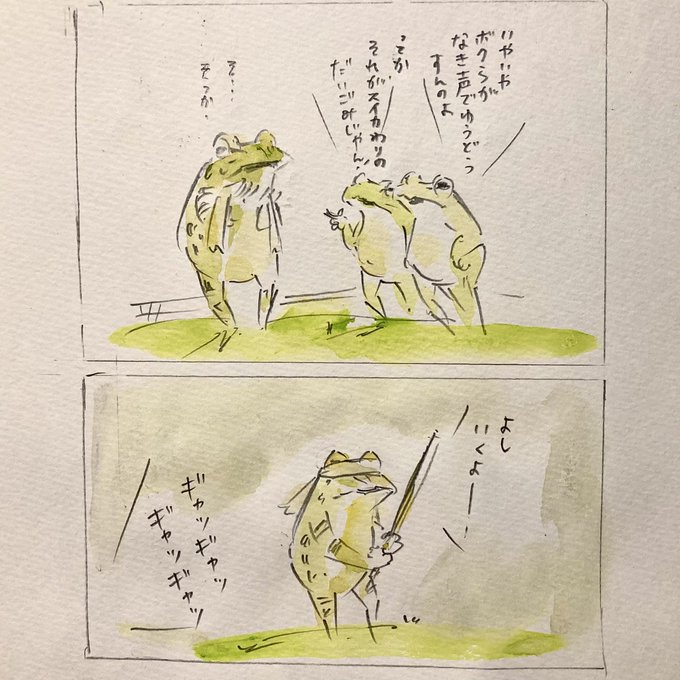 いやいや
ボクらが
なき声でゆうどう
すんのよ
ってか
それがスイカわりの
だいごみじゃん!
そ…
そっか。
よし
いくよー!
ギャッギャッ
ギャッギャッ